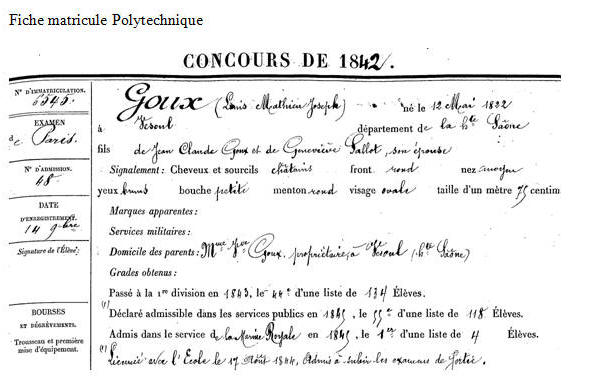 Fiche matricule Polytechnique
CONCOURS DE 1842.
N° D'IMMATRICULATION.
6545.
EXAMEN
de Paris.
N° D'ADMISSION.
48.
DATE
D'ENREGISTREMENT.
14 9bre
Signature de l'Élève:
BOURSES
ET DÉGRÈVEMENTS.
Trousseau et première
mise d'équipement.
Goux (Louis Mathieu Joseph) né le 12 Mai 1822
à Vesoul département de la hte Saône
fils de Jean Claude Goux et de Geneviève Pallot, son épouse
Signalement: Cheveux et sourcils châtains front rond nez moyen
yeux bruns bouche petite menton rond visage ovale taille d'un mètre 75 centim
Marques apparentes:
Services militaires:
Domicile des parents: Mme Vve Goux, propriétaire, à Vesoul (hte Saône)
Grades obtenus:
Passé à la 1re division en 1843, le 44e d'une liste de 134 Élèves.
(1) Déclaré admissible dans les services publics en 1845, le 55e d'une liste de 118 Élèves.
Admis dans le service de la Marine Royale en 1845, le 1er d'une liste de 4 Élèves.
(1) Licencié avec l'École le 17 Août 1844, Admis à subir les examens de sortie.